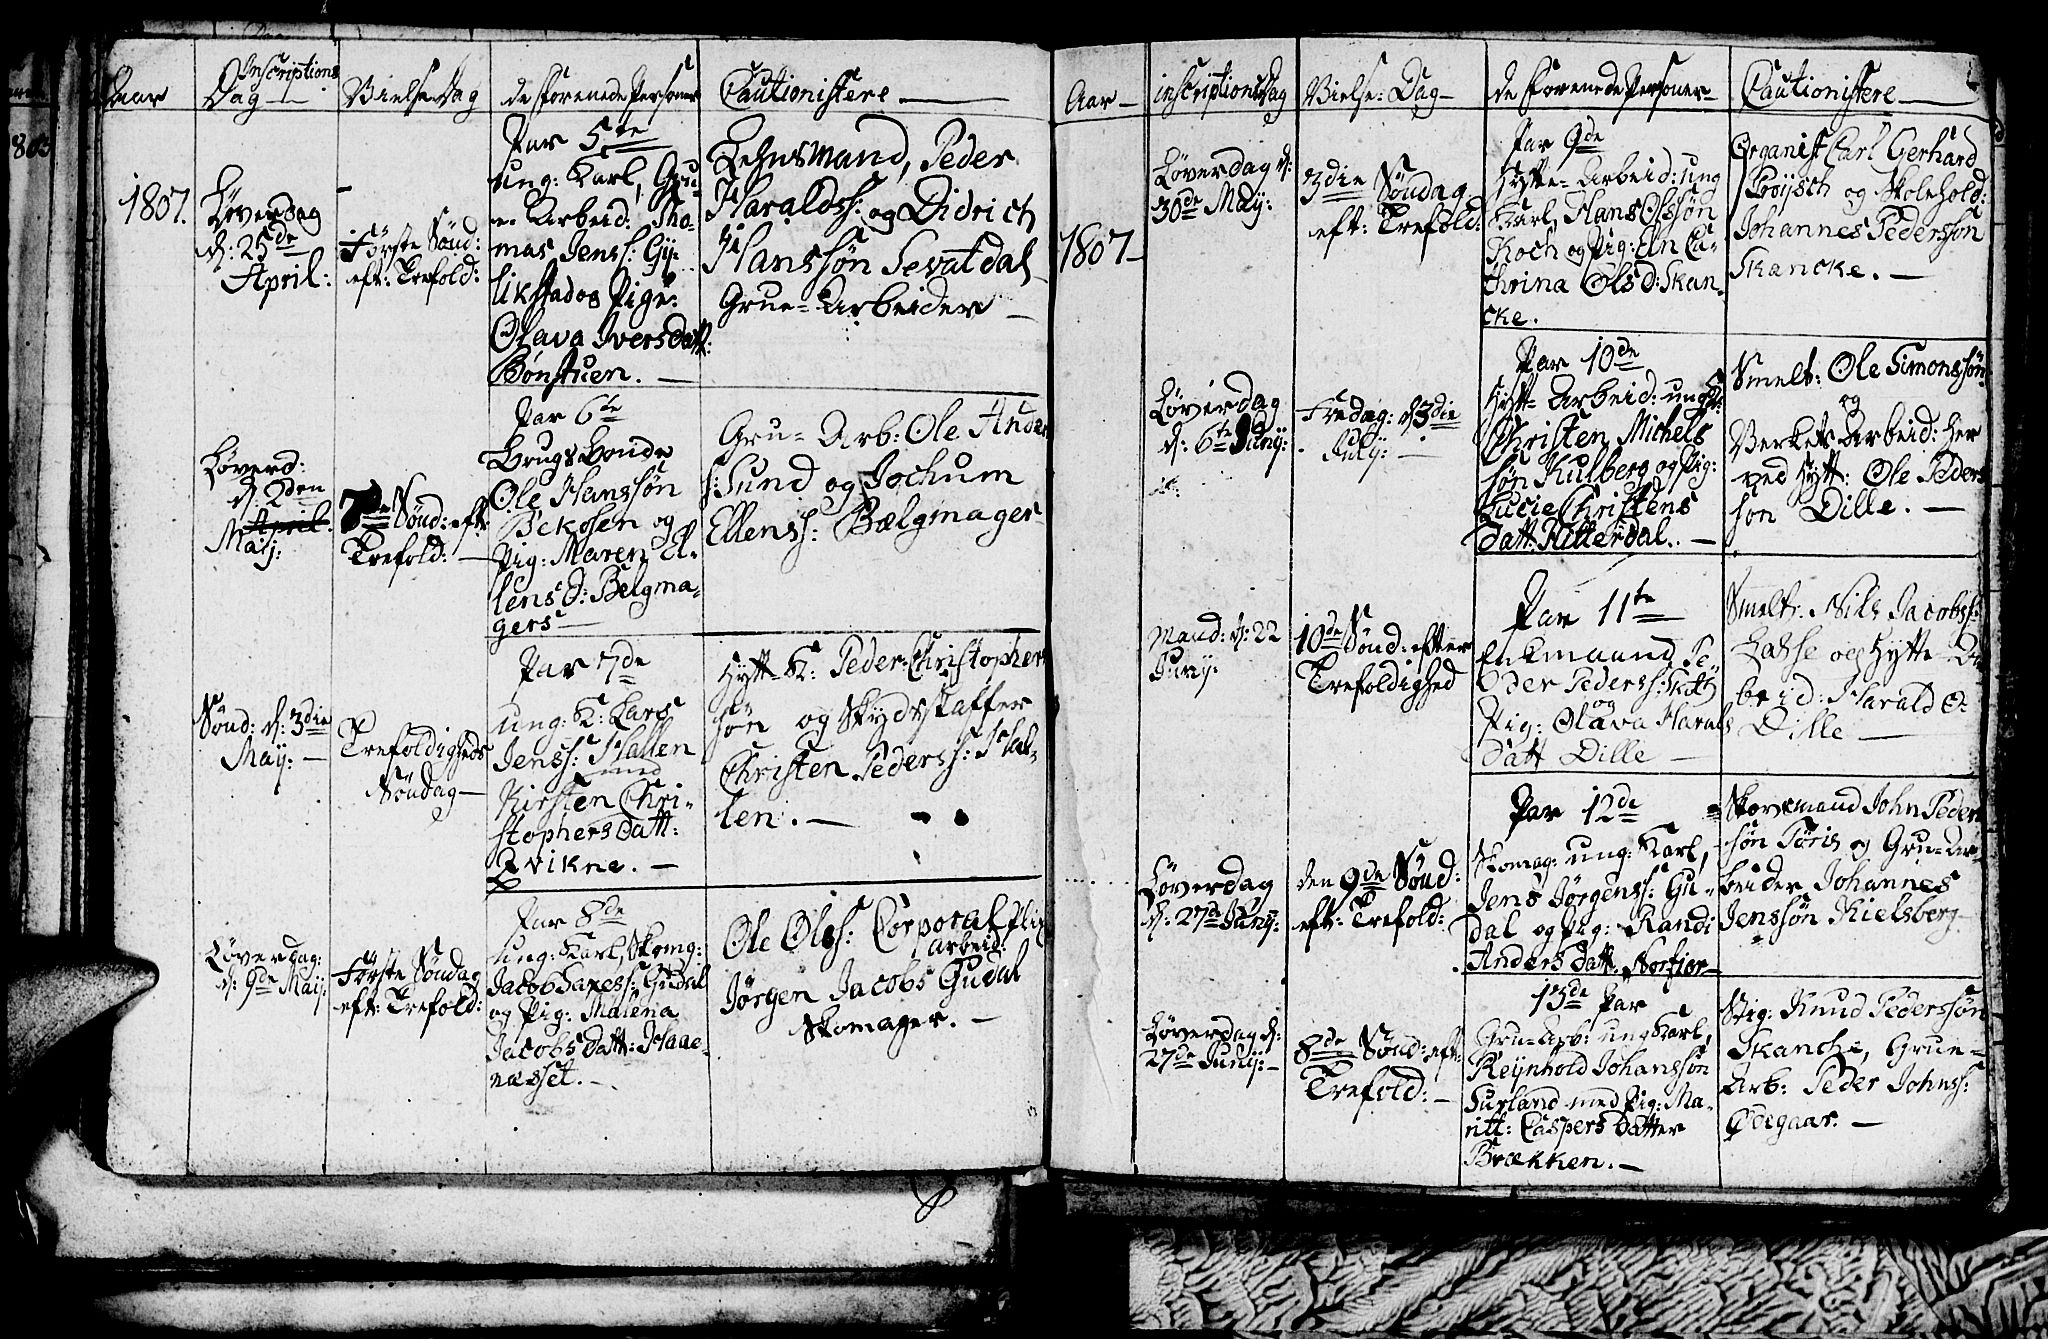 Aar
Inscriptions
Dag
Vielse Dag
de forenede Personer
Cautionistere
1807.
Løverdag
d: 25de
April:
Første Sønd:
eft: Trefold:
Par 5te
ung: Karl, Gru-
e Arbeid: Tho-
mas Jenss: Gy-
likstados Pige:
Olava Iversdatt:
Bønstuen.
Lehnsmand, Peder
Haraldss: og Didrich
Hanssøn Sevatdal
Grue-Arbeider
Løverd:
d. 2den
April.
Maij:
7de Sønd: eft:
Trefold:
Par 6te
Brugs Bonde
Ole Hanssøn
Bekosen og
Pig: Maren El-
lens D: Belgma-
gers
Gru-Arb: Ole Anders
s: Sund og Jochum
Ellenss: Bælgmager
Sønd: d: 3die
Maij:
Trefoldigheds
Søndag
Par 7de
ung: K: Lars
Jenss: Hallen
med
Kirsten Chri-
stophersdatt:
Qvikne.
Hytt-K: Peder Christophers
søn og Skydsskaffer
Christen Pederss: Hal-
len.
Løverdag:
d: 9de Maij:
Første Søndag
eft: Trefold:
Par 8de
ung: Karl, Skomg:
Jacob Larss: Gudal
og Pig: Malena
Jacobsdatt: Haae-
næsset.
Ole Olss: Corporal
arbeid:
Jørgen Jacobs Gudal
Skomager.
Aar
inscriptions Dag
Vielse: Dag
de forenede Personer
Cautionistere
1807
Løverdag d:
30de Maij:
3die Søndag
eft: Trefold:
Par 9de
Hytte-Arbeid: ung
Karl, Hans Olssøn
Koch og Pig: Eln Ca-
thrina Olsd: Skan-
cke.
Organist Carl Gerhard
Proysch og Skolehold:
Johannes Pederssøn
Skancke.
Løverdag
d: 6te Junij:
Fredag: d 3die
Julij:
Par 10de
Hytt-Arbeid: ung K:
Christen Michels
søn Kulberg og Pig:
Lucie Christens
datt: Hitterdal.
Smelt: Ole Simonssøn
og
Verkets Arbeid: her
ved Hytt: Ole Peders
søn Dille.
Mand: d: 22
Junij:
10de Sønd: efter
Trefoldighed
Par 11te
Enkemand Pe-
der Pederss: Skott
og
Pig: Olava Harals
datt Dille
Smelt: Nils Jacobss:
Lasse og Hytte Ar
beid: Harald O:
Dille
Løverdag
d: 27de Junij:
den 9de Sønd:
eft: Trefold:
Par 12de
Skomag: ung: Karl,
Jens Jørgenss: Gu-
dal og Pig: Randi
Anders datt: Norfjor
Skorsmand John Peder
søn Tøris og Gru-Ar-
beider Johannes
Jenssøn Kielsberg
Løverdag d:
27de Junij:
8de Sønd: eft:
Trefold:
13de Par
Gru-Arb: ung Karl,
Reynhold Johanssøn
Surland med Pig: Ma-
ritt: Caspers datter
Brækken.
Stig: Knud Pederssøn
Skanche, Grue-
Arb: Peder Johnss:
Ødegaar.